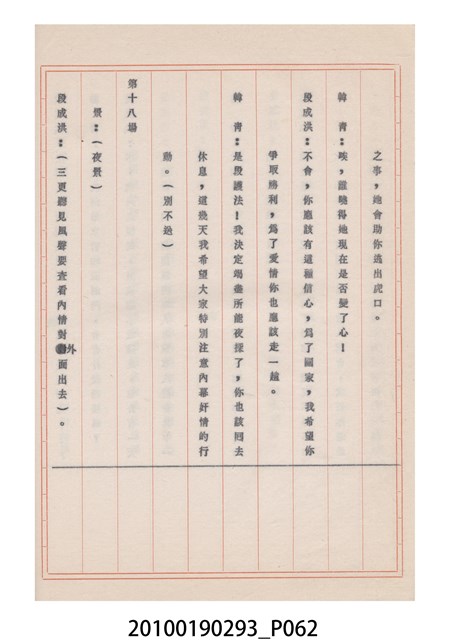 之事，她會助你逃出虎口。
韓　青：唉，誰曉得她現在是否變了心！
段成洪：不會，你應該有這種信心，爲了國家，我希望你
爭取勝利，爲了愛情你也應該走一趟。
韓　青：是段護法！我決定竭盡所能夜探了，你也該囘去
休息，這幾天我希望大家特別注意內幕奸情的行
動。（別不過）
第十八場
景：（夜景）
段成洪：（三更聽見風聲要查看內情對外面出去）。
20100190293_P062